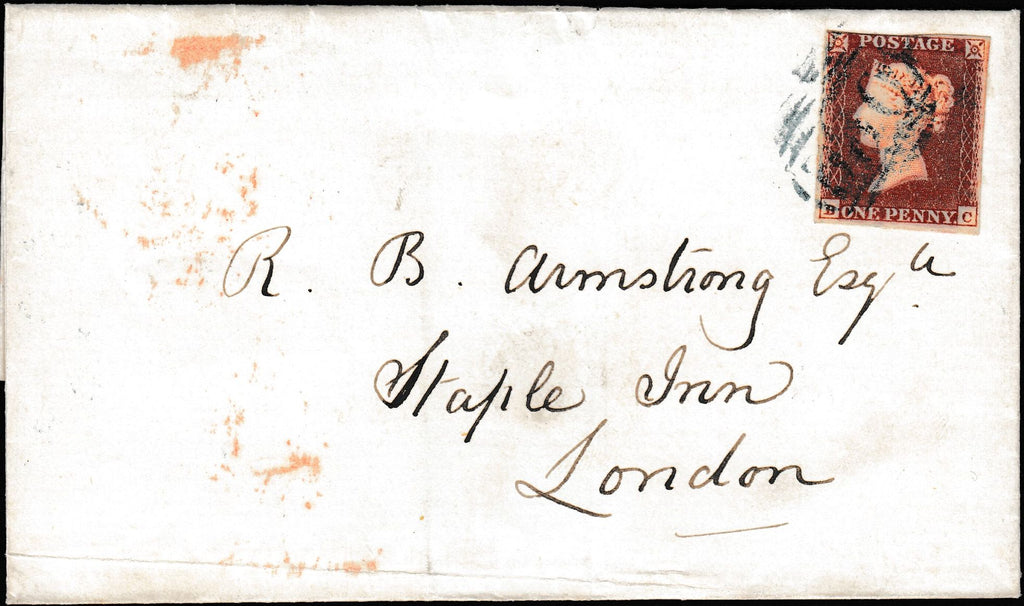 POSTAGE
B ONE PENNY. C
R. B. Armstrong Esqre
Staple Inn
London